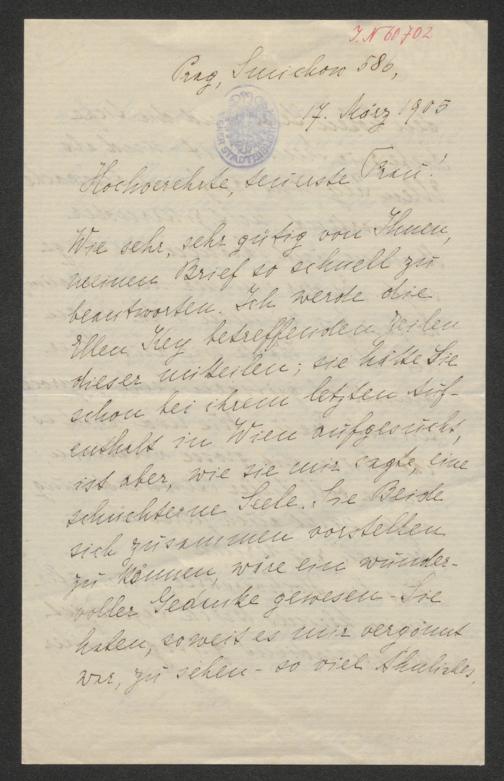 I.N 60702
Prag, Smichow 586,
17. März 1905
Hochverehrte, teuerste Frau!
Wie sehr, sehr gütig von Ihnen,
meinen Brief so schnell zu
beantworten. Ich werde die
Ellen Key betreffenden Zeilen
dieser mitteilen; sie hätte Sie
schon bei ihrem letzten Auf-
enthalt in Wien aufgesucht,
ist aber, wie sie mir sagte, eine
schüchterne Seele. Sie Beide
sich zusammen vorstellen
zu können, wäre ein wunder-
voller Gedanke gewesen - Sie
haben, soweit es mir vergönnt
war, zu sehen - so viel Ähnliches,